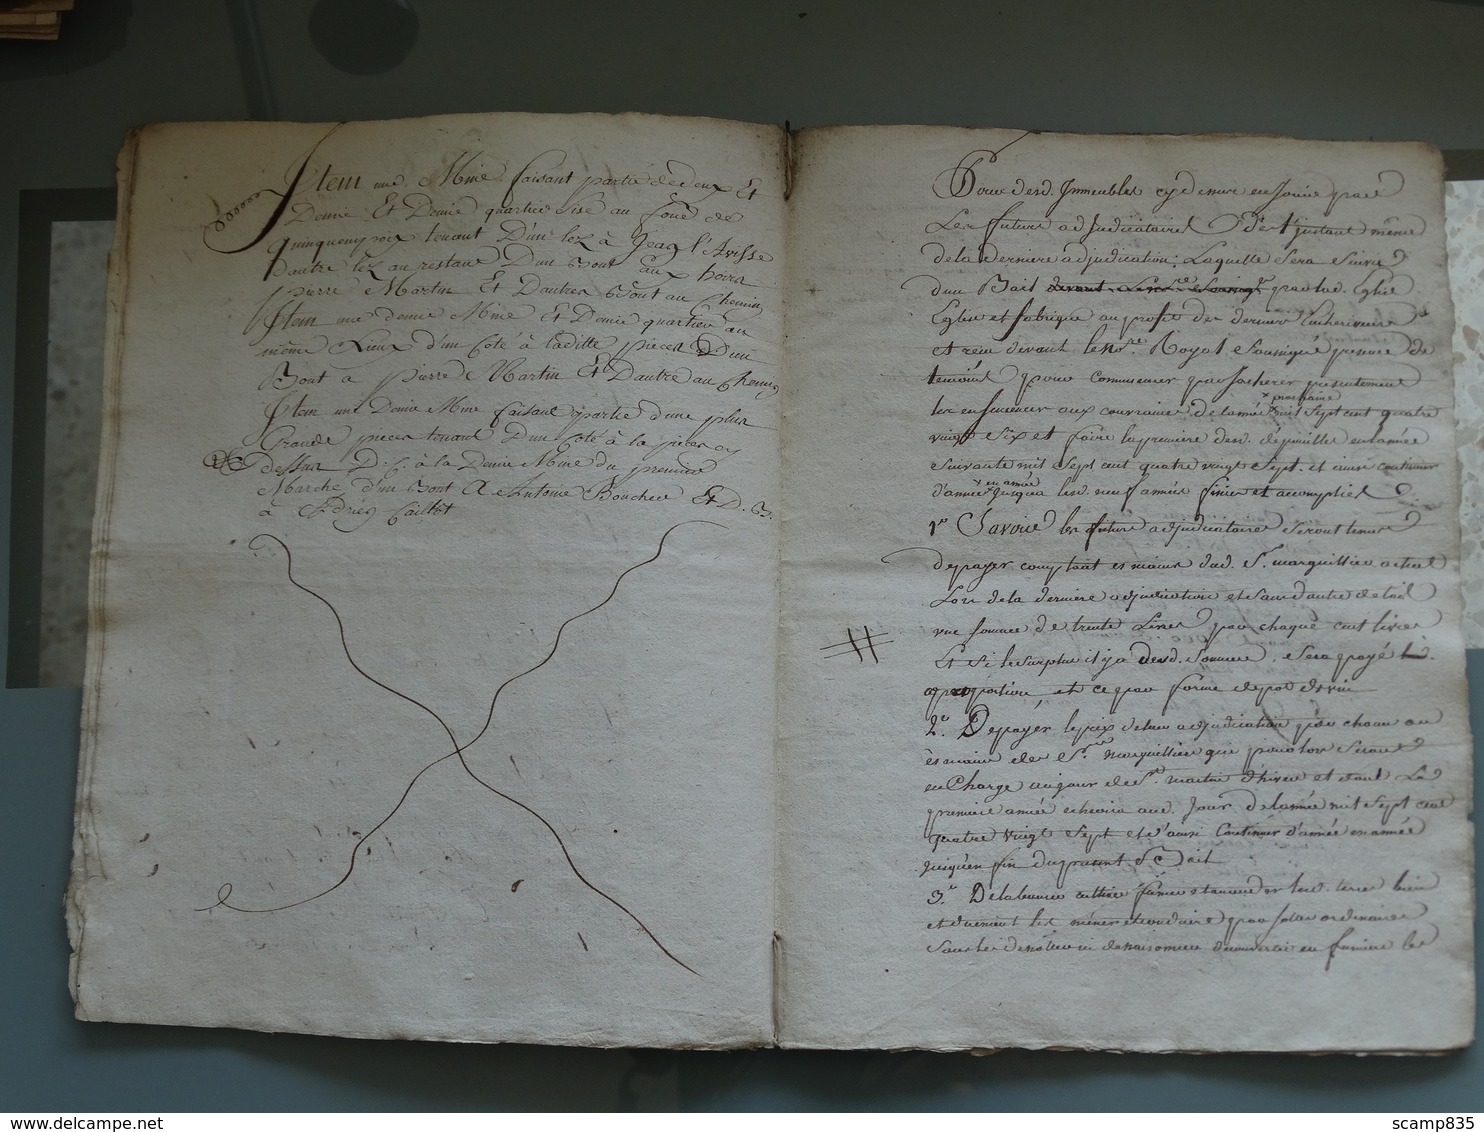 Item une Mine faisant partie de deux Et
Demie Et Demie quartier sise au
quinquempoix tenant D'un lez à Jean l'Avisse
Dautre lez au restant D'un Bout aux hoirs
pierre Martin Et D'autres Bout au Chemin
Item une demie Mine Et Demie quartier au
même Lieux d'un Coté à laditte pieces D'un
Bout a pierre Martin Et Dautre au Chemin
Item une Demie Mine faisant partie d'une plus
Grande pieces tenant D'un Coté à la pieces cy
dessus D. C. à la Demie Mine du premier
Marché d'un Bout A Antoine Boucher Et D. B.
à Caillot
Pour desd. Immeubles cy dessus en Jouir par
Les futurs adjudicataires Dès l'instant même
de la derniere adjudication. Laquelle Sera Suivie
d'un Bail par lad. Eglise
Eglise et fabrique au profit des derniers Encherisseurs
et reçu devant le no.re Royal Soussigné presence de
temoins pour commencer par Jacherer presentement
les ensemencer aux couvraines de l'année x mil Sept cent quatre
x prochaine
vingt Six et faire la premiere desd. dépouilles en l'année
Suivante mil Sept cent quatre vingt Sept. et ainsi continuer
d'année x Jusqu'a lesd. neuf années finies et accomplies
x en année
1.° Savoir les futurs adjudicataires Seront tenus
de payer comptant es mains dud. S.r marguillier actuel
Lors de la derniere adjudication et Sans D'autre delai
une Somme de trente Livres pour chaque cent livres
Et Si le Surplus il y a desd. Sommes, Sera payé
a proportion et ce pour forme de pot de vin
2.° De payer le prix de leur adjudication par chacun an
ès mains des S.rs marguilliers qui pour lors Seront
en Charge au jour de S.t martin d'hiver et dont La
premiere année echeoira aud. Jour de l'année mil Sept cent
quatre vingt Sept et d'ainsi Continuer d'année en année
jusqu'en fin du present Bail
3.° De labourer cultiver fumer et amender lesd. terres bien
et duement les mener et conduire par Solles ordinaires
Sans les dessoller ni dessaisonner de convertir en fumiers les
scamp835